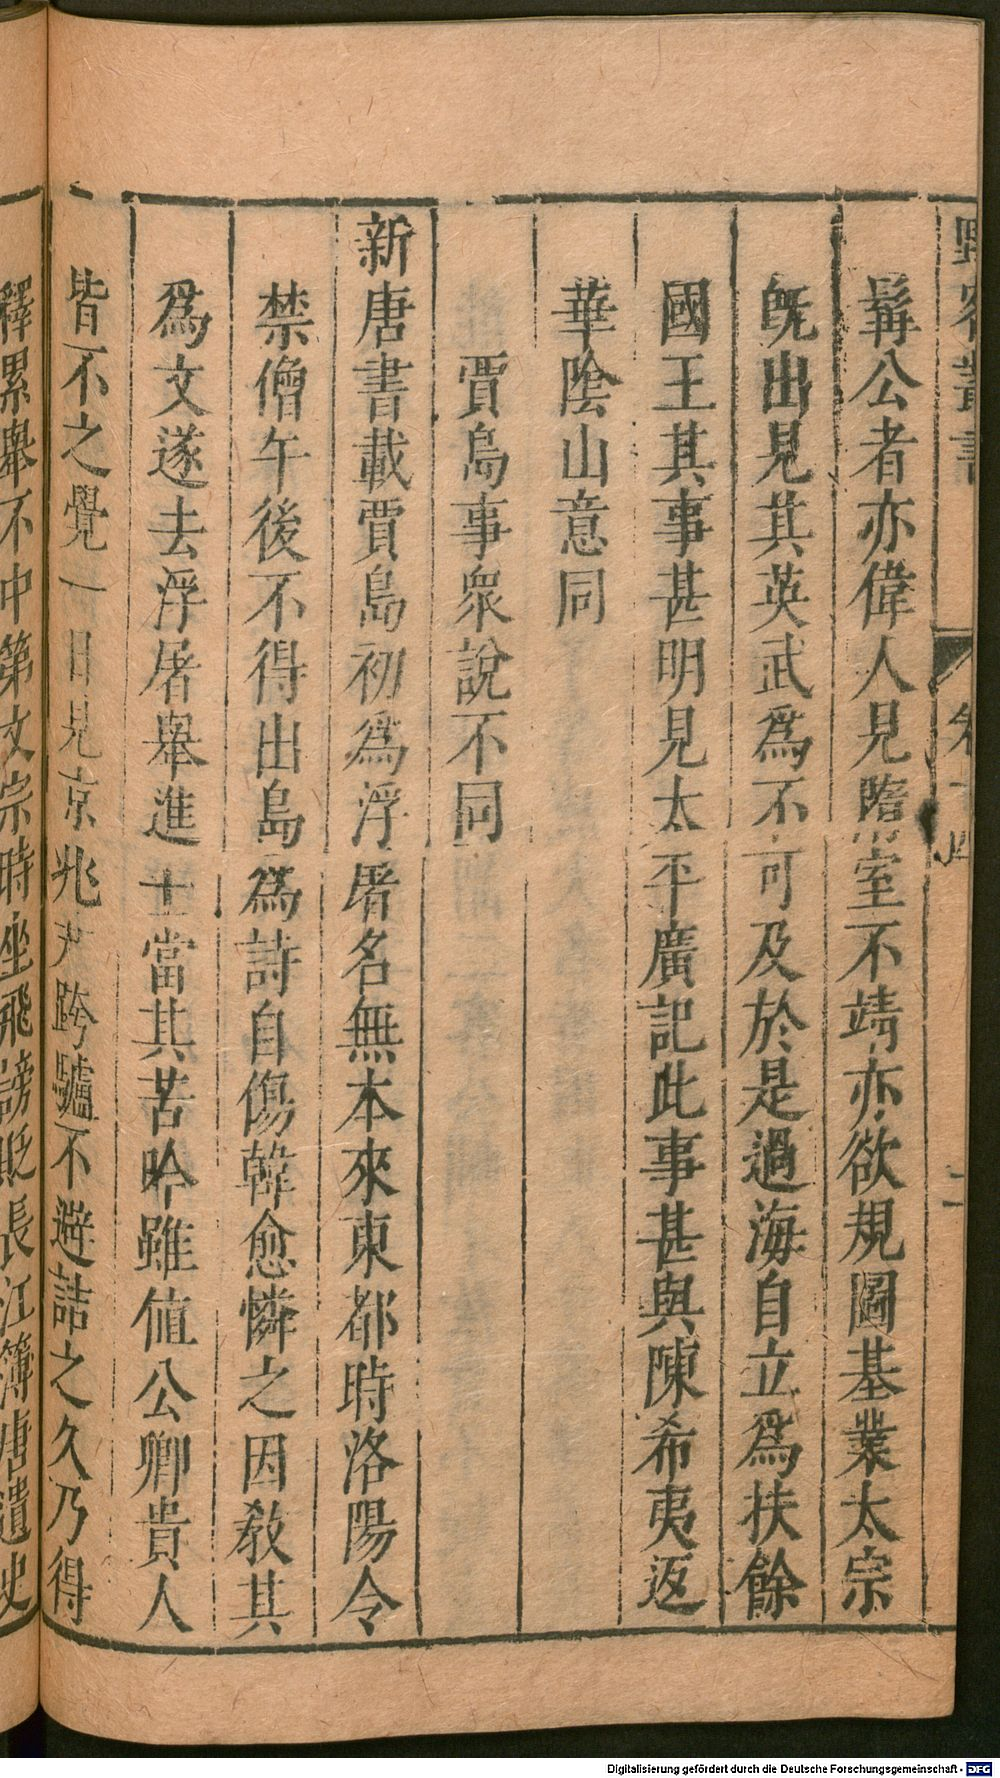 野客叢書 卷十四 二
髯公者亦偉人見隋室不靖亦欲規圖基業太宗
旣出見其英武爲不可及於是過海自立爲扶餘
國王其事甚明見太平廣記此事甚與陳希夷返
華陰山意同
賈島事衆說不同
新唐書載賈島初爲浮屠名無本來東都時洛陽令
禁僧午後不得出島爲詩自傷韓愈憐之因敎其
爲文遂去浮屠舉進士當其苦吟雖値公卿貴人
皆不之覺一日見京兆尹跨驢不避詰之久乃得
釋累舉不中第文宗時坐飛謗貶長江簿唐遺史
Digitalisierung gefördert durch die Deutsche Forschungsgemeinschaft - DFG